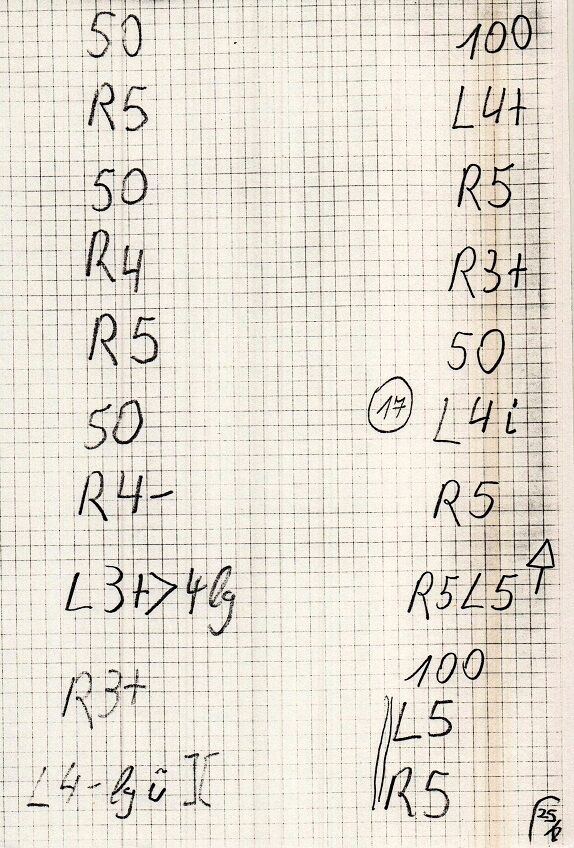 50
R5
50
R4
R5
50
R4-
L3+>4lg
R3+
L4-lg ü ][
100
L4+
R5
R3+
50
17 L4i
R5
R5L5
100
L5
R5